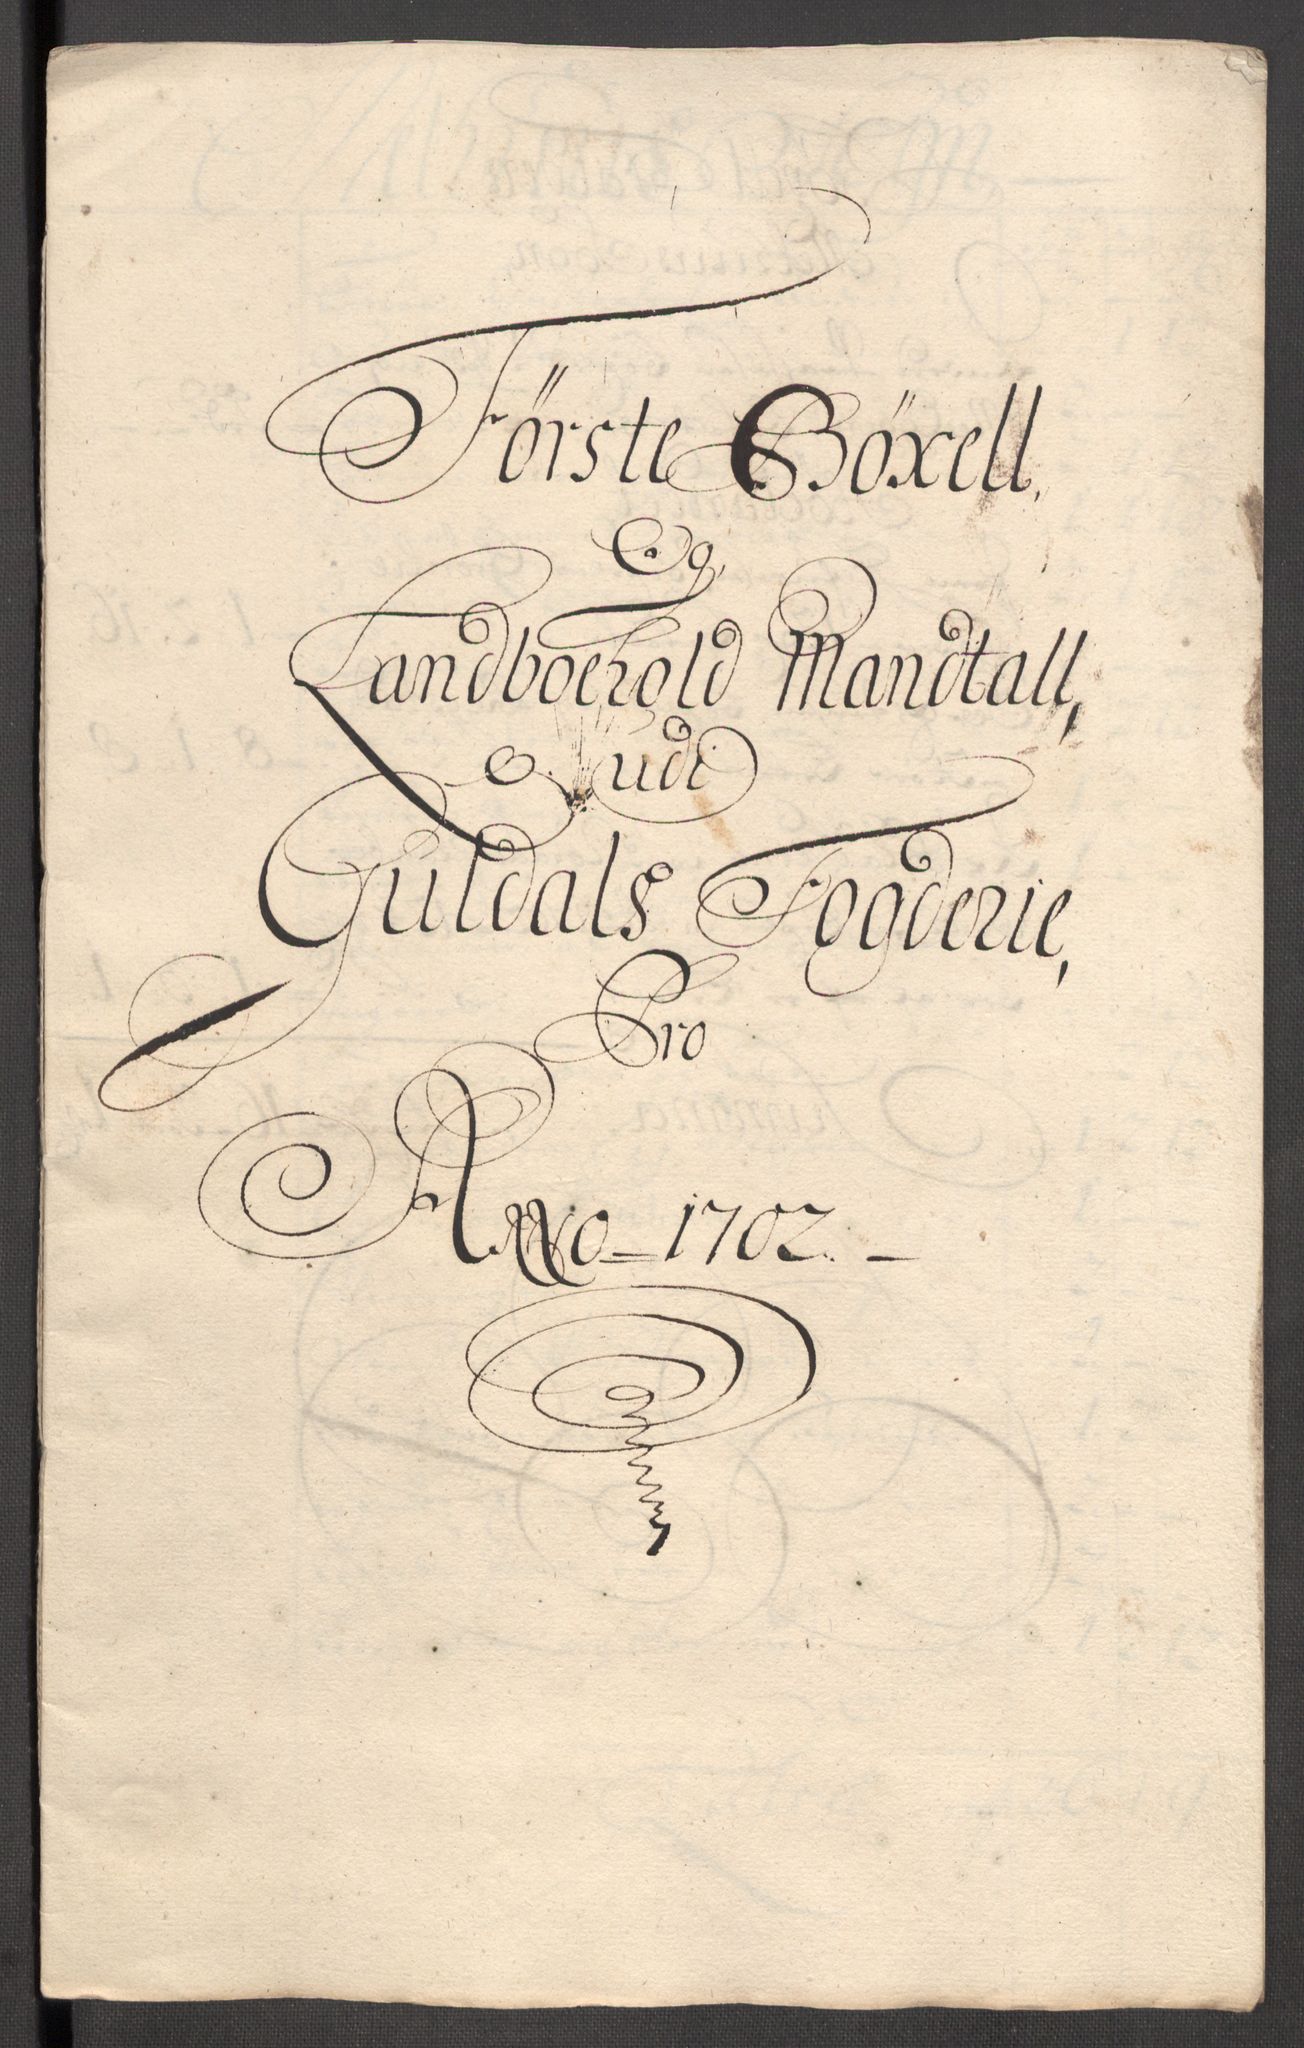 Förste Böxell,
Og,
Landboehold Mandtall,
udi
Guldals Fogderie,
Pro
Anno 1702.